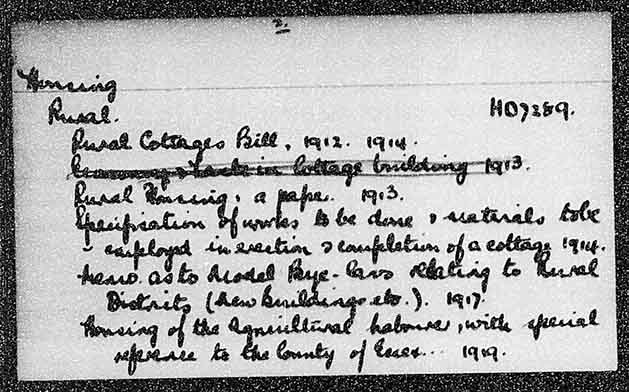 2.
Housing
Rural.
HD7289.
Rural Cottages Bill, 1912. 1914.
Economy & taste in Cottage building 1913.
Rural Housing, a paper. 1913.
Specification of works to be done & materials to be
employed in erection & completion of a cottage 1914.
Memo. as to Model Bye-laws relating to Rural
Districts (New Buildings etc.). 1917.
Housing of the Agricultural labourer, with special
reference to the County of Essex... 1919.